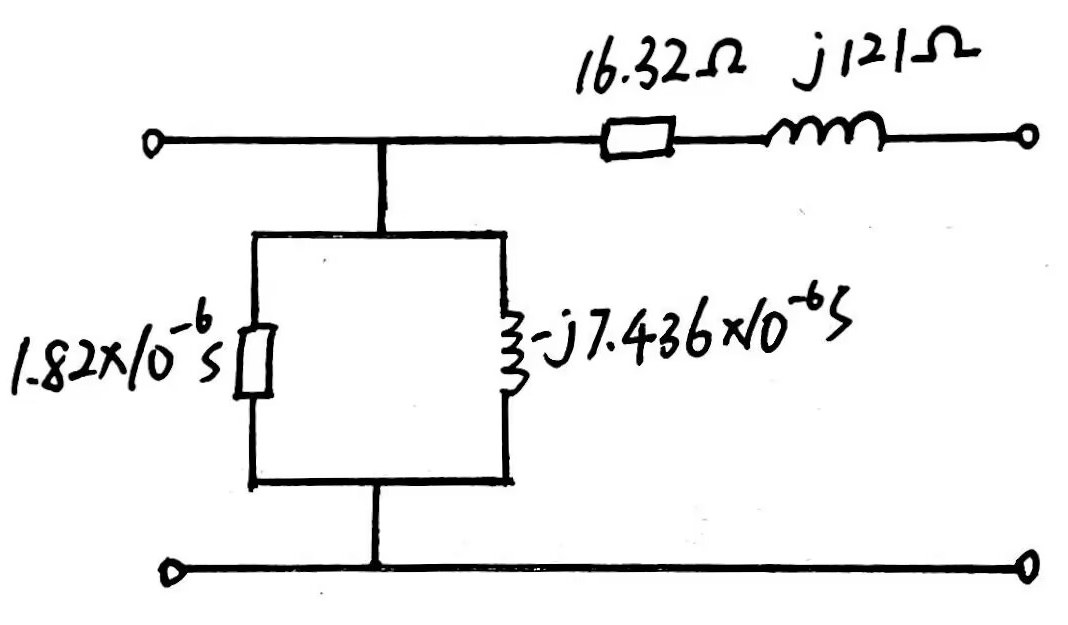 16.32Ω j121Ω
1.82×10⁻⁶S
-j7.436×10⁻⁶S